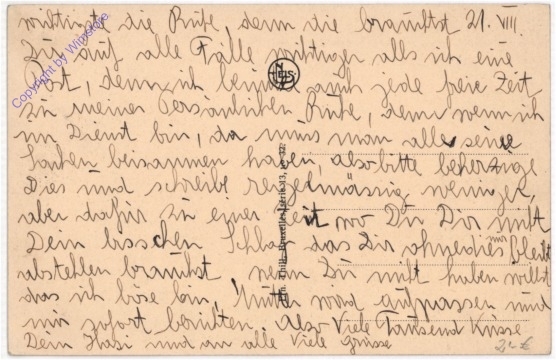 wichtigste die Ruhe, denn die brauchst 21. VIII.
Du auf alle Fälle wichtiger als ich eine
Post, denn ich auch jede freie Zeit
zu meiner persönlichen Ruhe, denn wenn ich
im Dienst bin, da muss man alle seine
beisammen haben, also bitte beherzige
Dies und schreibe regelmässig weniger,
aber dafür zu einer Zeit wo Du Dir nicht
Dein bisschen Schlaf das Dir ohnedies nur bleibt
abstehlen brauchst wenn Du nicht haben willst
das ich böse bin, Mutter wird aufpassen und
mir sofort berichten. Also Viele Tausend Küsse
Dein Hasi und an alle Viele Grüsse
NELS
Ern. Thill, Bruxelles
Copyright by Wipstere
24€